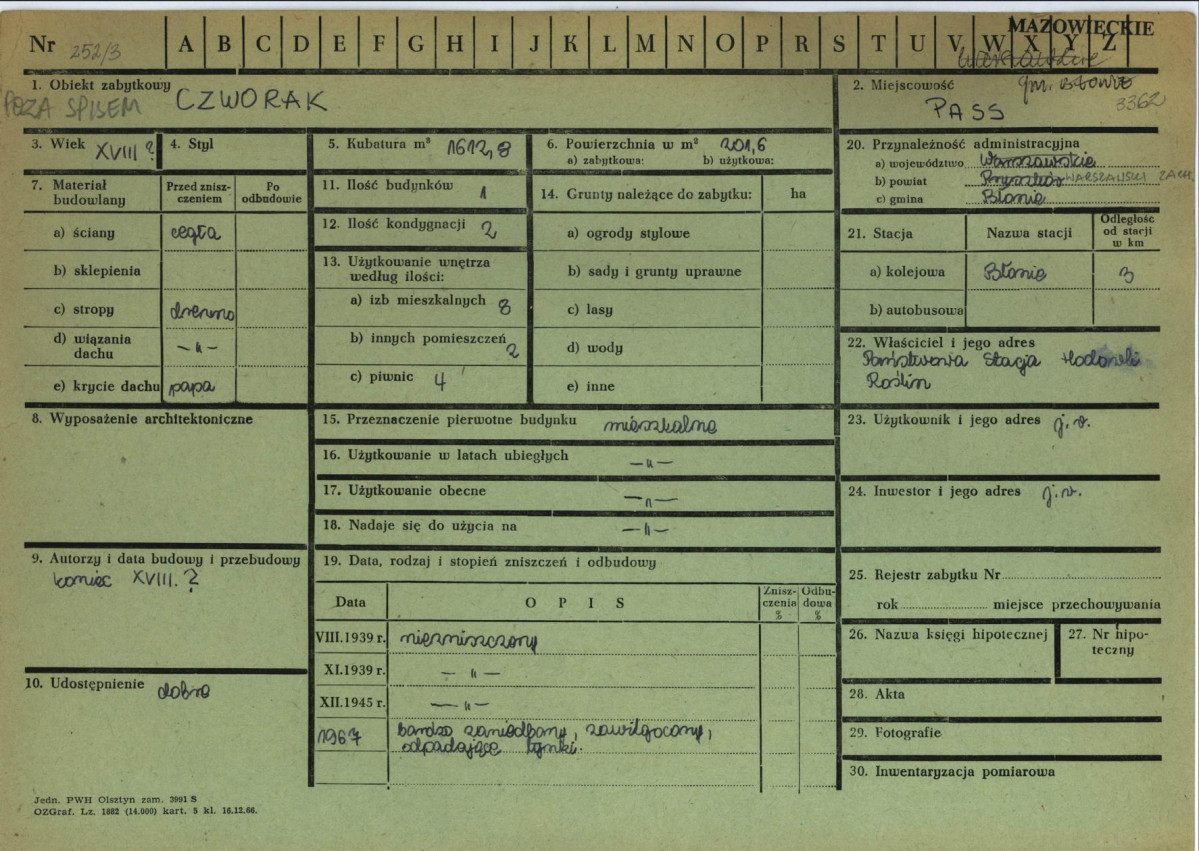 MAZOWIECKIE
Nr 252/3 A B C D E F G H I J K L M N O P R S T U V W X Y Z
warszawskie
1. Obiekt zabytkowy CZWORAK
POZA SPISEM
2. Miejscowość gm. BŁONIE
PASS 3362
3. Wiek XVIII ?
4. Styl
5. Kubatura m³ 1612,8
6. Powierzchnia w m² 201,6
a) zabytkowa: b) użytkowa:
7. Materiał budowlany
Przed znisz-
czeniem
Po
odbudowie
a) ściany cegła
b) sklepienia
c) stropy drewno
d) wiązania
dachu —〃—
e) krycie dachu papa
8. Wyposażenie architektoniczne
9. Autorzy i data budowy i przebudowy
koniec XVIII. ?
10. Udostępnienie dobre
11. Ilość budynków 1
12. Ilość kondygnacji 2
13. Użytkowanie wnętrza
według ilości:
a) izb mieszkalnych 8
b) innych pomieszczeń 2
c) piwnic 4
14. Grunty należące do zabytku: ha
a) ogrody stylowe
b) sady i grunty uprawne
c) lasy
d) wody
e) inne
15. Przeznaczenie pierwotne budynku mieszkalne
16. Użytkowanie w latach ubiegłych —〃—
17. Użytkowanie obecne —〃—
18. Nadaje się do użycia na —〃—
19. Data, rodzaj i stopień zniszczeń i odbudowy
Data OPIS
Znisz-
czenia
%
Odbu-
dowa
%
VIII.1939 r. niezniszczony
XI.1939 r. —〃—
XII.1945 r. —〃—
1967 bardzo zaniedbany, zawilgocony,
odpadające tynki.
20. Przynależność administracyjna
a) województwo Warszawskie
b) powiat Pruszków WARSZAWSKI ZACH.
c) gmina Błonie
21. Stacja Nazwa stacji
Odległość
od stacji
w km
a) kolejowa Błonie 3
b) autobusowa
22. Właściciel i jego adres
Państwowa Stacja Hodowli
Roślin
23. Użytkownik i jego adres j.w.
24. Inwestor i jego adres j.w.
25. Rejestr zabytku Nr
rok miejsce przechowywania
26. Nazwa księgi hipotecznej
27. Nr hipo-
teczny
28. Akta
29. Fotografie
30. Inwentaryzacja pomiarowa
Jedn. PWH Olsztyn zam. 3991 S
OZGraf. Lz. 1882 (14.000) kart. 5 kl. 16.12.66.